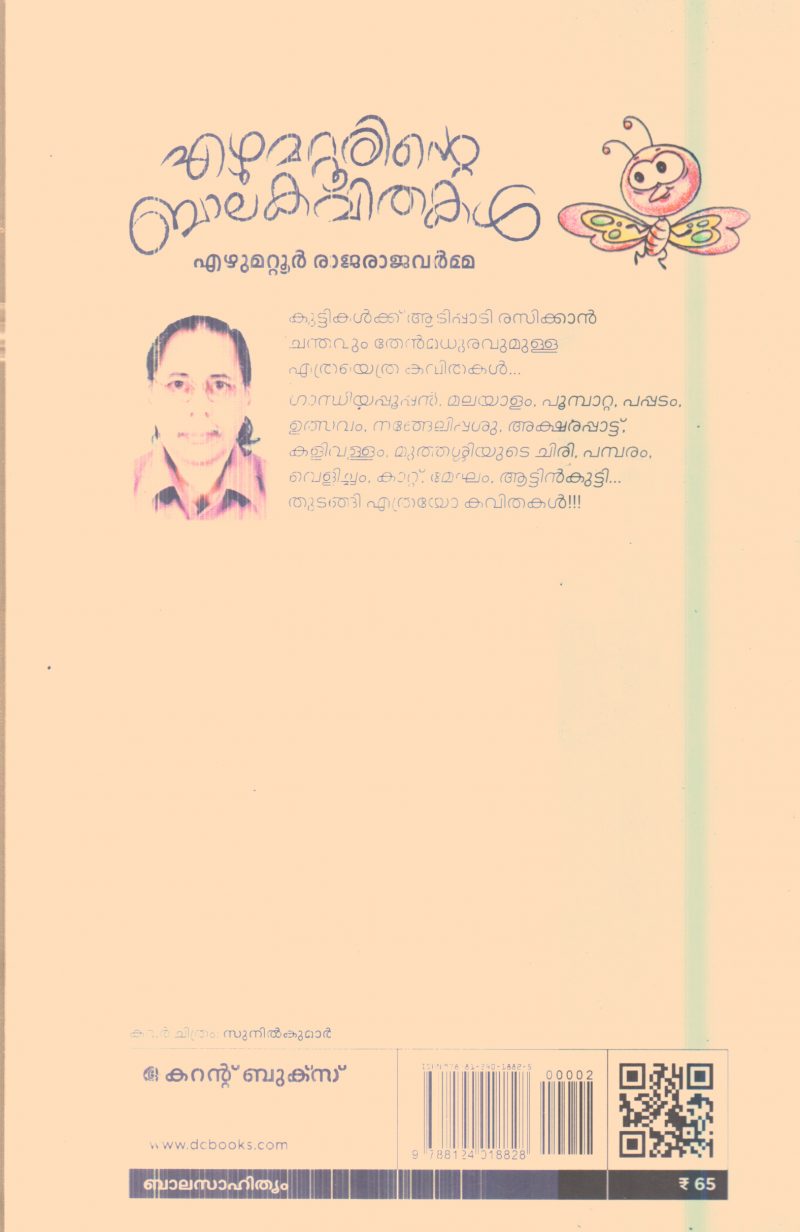 എഴുമറ്റൂരിന്റെ
ബാലകവിതകൾ
എഴുമറ്റൂർ രാജരാജവർമ്മ
കുട്ടികൾക്ക് ആടിപ്പാടി രസിക്കാൻ
ചന്തവും തേൻമധുരവുമുള്ള
എത്രയെത്ര കവിതകൾ...
ഗാന്ധിയപ്പൂപ്പൻ, മലയാളം, പൂമ്പാറ്റ, പപ്പടം,
ഉത്സവം, നങ്ങേലിപ്പശു, അക്ഷരപ്പാട്ട്,
കളിവള്ളം, മുത്തശ്ശിയുടെ ചിരി, പമ്പരം,
വെളിച്ചം, കാറ്റ്, മേഘം, ആട്ടിൻകുട്ടി...
തുടങ്ങി എത്രയോ കവിതകൾ!!!
കവർ ചിത്രം: സുനിൽകുമാർ
കറന്റ് ബുക്സ്
www.dcbooks.com
ISBN 978-81-240-1882-8
00002
9 788124 018828
ബാലസാഹിത്യം
₹ 65